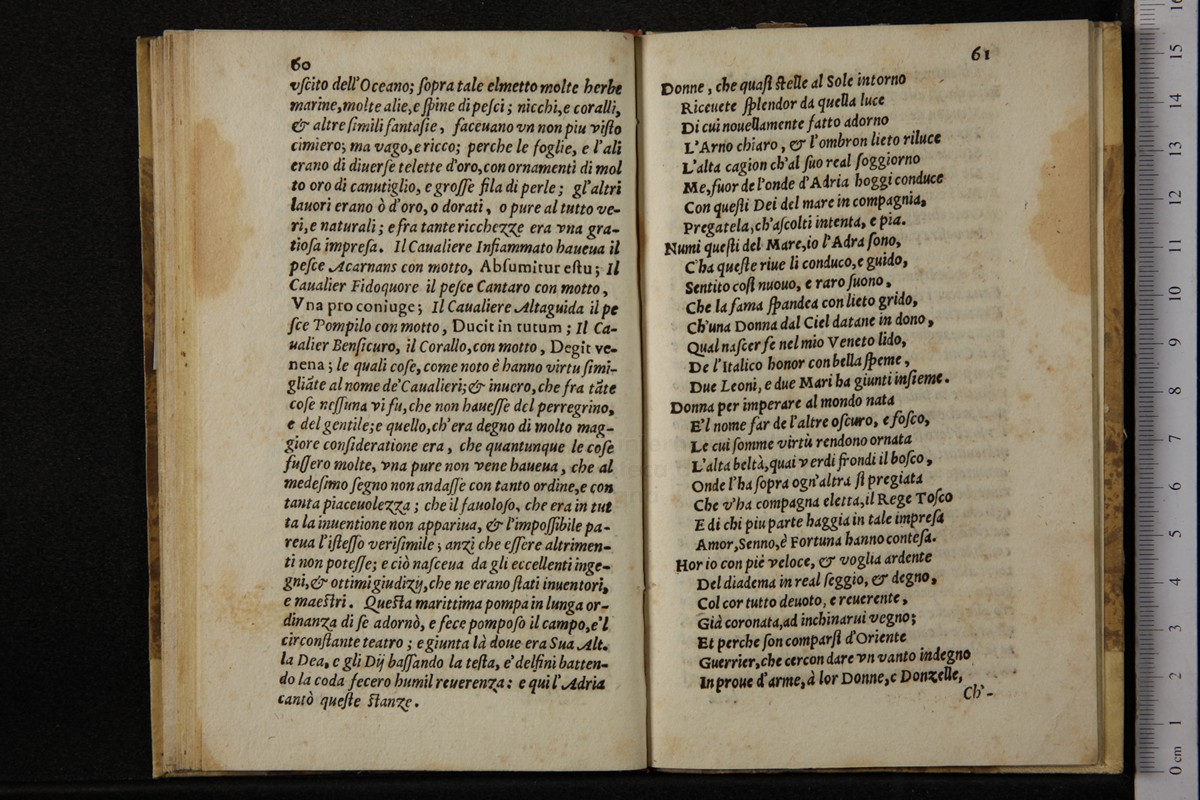 60
vſcito dell'Oceano; ſopra tale elmetto molte herbe
marine,molte alie,e ſpine di peſci; nicchi,e coralli,
& altre ſimili fantaſie, faceuano vn non piu viſto
cimiero; ma vago,e ricco; perche le foglie, e l'ali
erano di diuerſe telette d'oro,con ornamenti di mol
to oro di canutiglio, e groſſe fila di perle; gl'altri
lauori erano ò d'oro, o dorati, o pure al tutto ve-
ri,e naturali; e fra tante ricchezze era vna gra-
tioſa impreſa. Il Caualiere Infiammato haueua il
peſce Acarnans con motto, Abſumitur eſtu; Il
Caualier Fidoquore il peſce Cantaro con motto,
Vna pro coniuge; Il Caualiere Altaguida il pe
ſce Pompilo con motto, Ducit in tutum; Il Ca-
ualier Benſicuro, il Corallo,con motto, Degit ve-
nena; le quali coſe, come noto è hanno virtu ſimi-
gliāte al nome de' Caualieri;& inuero, che fra tāte
coſe neſſuna vi fu, che non haueſſe del perregrino,
e del gentile;e quello,ch'era degno di molto mag-
giore conſideratione era, che quantunque le coſe
fuſſero molte, vna pure non vene haueua, che al
medeſimo ſegno non andaſſe con tanto ordine,e con
tanta piaceuolezza; che il fauoloſo, che era in tut
ta la inuentione non appariua, & l'impoſſibile pa-
reua l'iſteſſo veriſimile; anzi che eſſere altrimen-
ti non poteſſe; e ciò naſceua da gli eccellenti inge-
gni,& ottimi giudizij,che ne erano ſtati inuentori,
e maeſtri. Queſta marittima pompa in lunga or-
dinanza di ſe adornò, e fece pompoſo il campo,e'l
circonſtante teatro; e giunta là doue era Sua Alt.
la Dea, e gli Dij baſſando la teſta, e' delfini batten-
do la coda fecero humil reuerenza: e qui l'Adria
cantò queſte ſtanze.
61
Donne, che quaſi ſtelle al Sole intorno
Riceuete ſplendor da quella luce
Di cui nouellamente fatto adorno
L'Arno chiaro, & l'ombron lieto riluce
L'alta cagion ch'al ſuo real ſoggiorno
Me,fuor de l'onde d'Adria hoggi conduce
Con queſti Dei del mare in compagnia,
Pregatela,ch'aſcolti intenta, e pia.
Numi queſti del Mare,io l'Adra ſono,
C'ha queſte riue li conduco,e guido,
Sentito coſi nuouo, e raro ſuono,
Che la fama ſpandea con lieto grido,
Ch'una Donna dal Ciel datane in dono,
Qual naſcer fe nel mio Veneto lido,
De l'Italico honor con bella ſpeme,
Due Leoni, e due Mari ha giunti inſieme.
Donna per imperare al mondo nata
E'l nome far de l'altre oſcuro, e foſco,
Le cui ſomme virtù rendono ornata
L'alta beltà,quai verdi frondi il boſco,
Onde l'ha ſopra ogn'altra ſi pregiata
Che v'ha compagna eletta,il Rege Toſco
E di chi piu parte haggia in tale impreſa
Amor,Senno,è Fortuna hanno conteſa.
Hor io con piè veloce, & voglia ardente
Del diadema in real ſeggio, & degno,
Col cor tutto deuoto, e reuerente,
Già coronata,ad inchinarui vegno;
Et perche ſon comparſi d'Oriente
Guerrier,che cercon dare vn vanto indegno
In proue d'arme,à lor Donne,e Donzelle,
Ch'-